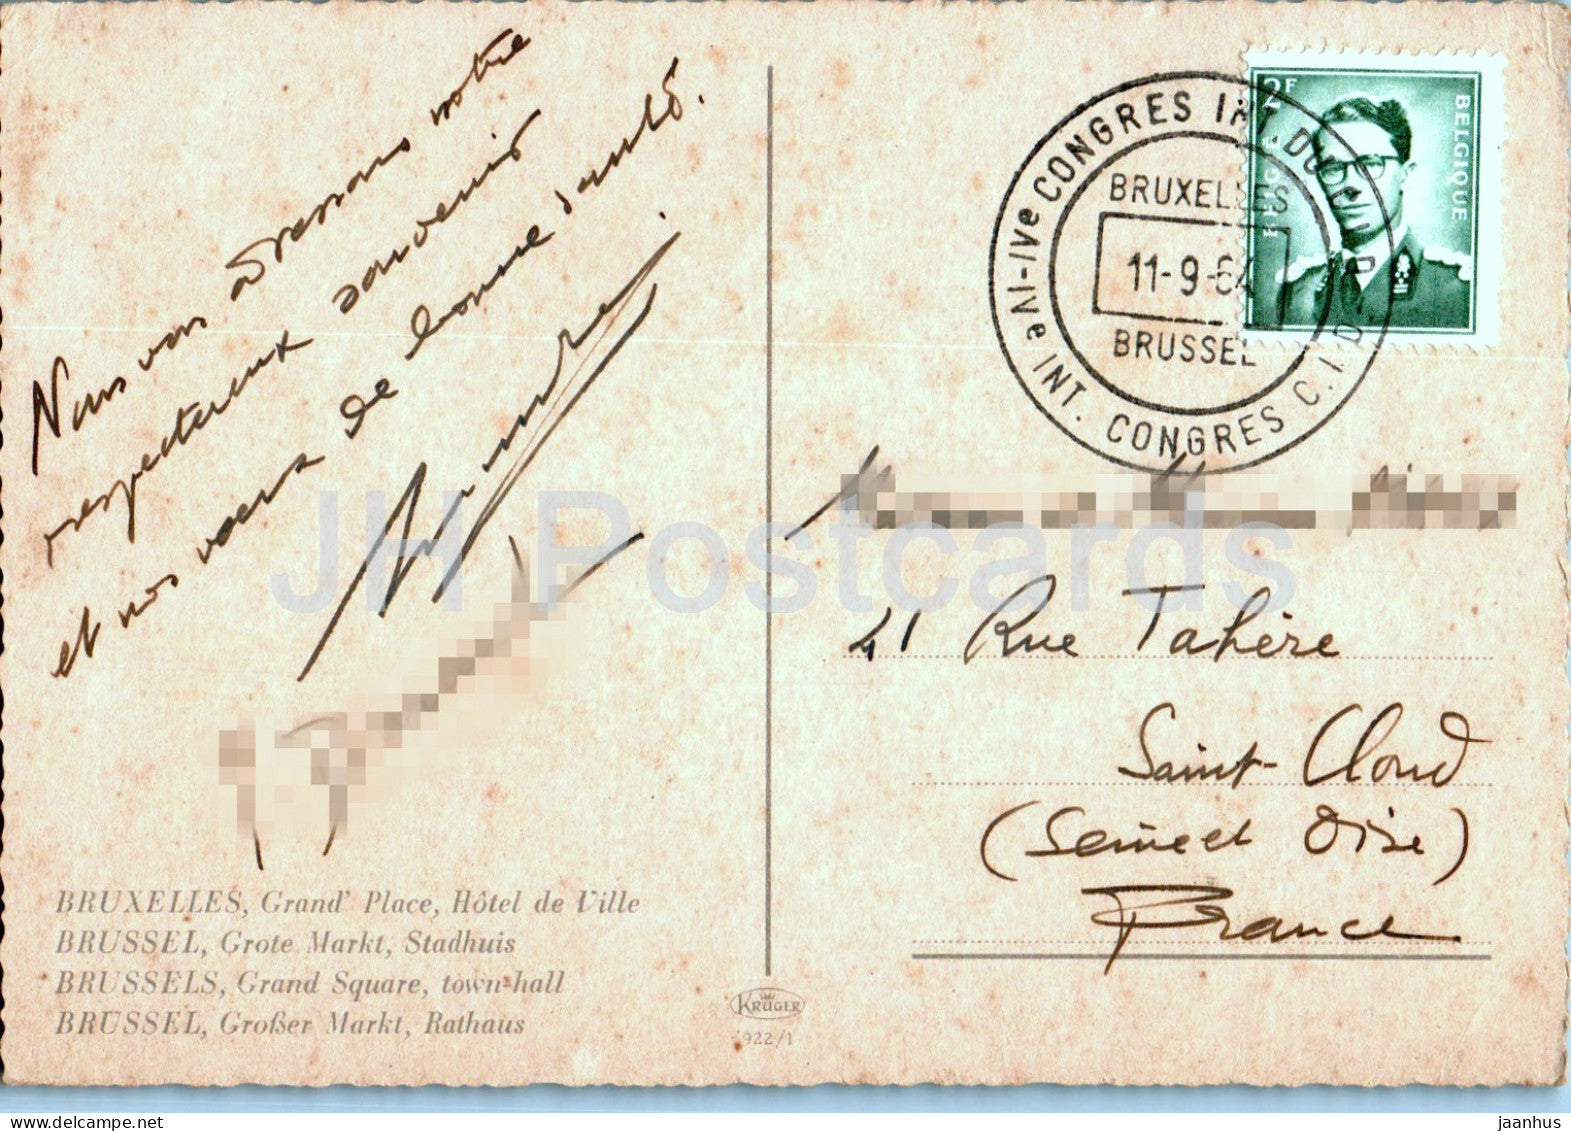 Nous vous adressons notre
respectueux souvenir
et nos vœux de bonne santé.
BRUXELLES, Grand' Place, Hôtel de Ville
BRUSSEL, Grote Markt, Stadhuis
BRUSSELS, Grand Square, town-hall
BRÜSSEL, Großer Markt, Rathaus
KRÜGER
922/1
IVe CONGRES INT. DU C.I.D.
IVe INT. CONGRES C.I.D.
BRUXELLES
11-9-64
BRUSSEL
2F
BELGIQUE
BELGIE
41 Rue Tahère
Saint-Cloud
(Seine et Oise)
France
JH Postcards
jaanhus